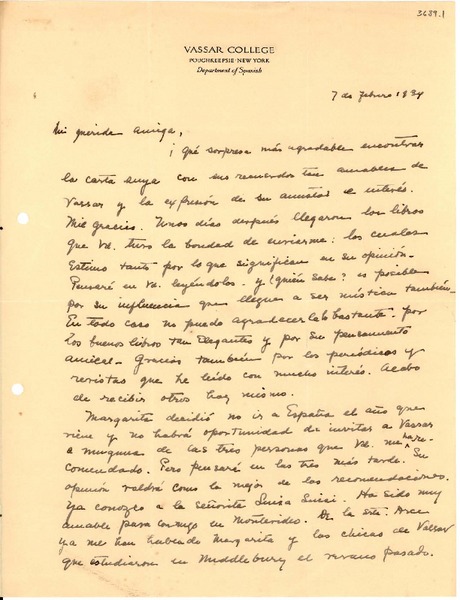 3689.1
VASSAR COLLEGE
POUGHKEEPSIE · NEW YORK
Department of Spanish
7 de febrero 1934
Mi querida Amiga,
¡Qué sorpresa más agradable encontrar
la carta suya con sus recuerdos tan amables de
Vassar y la expresión de su amistad e interés.
Mil gracias. Unos días después llegaron los libros
que Vd. tuvo la bondad de enviarme: los cuales
estimo tanto por lo que significan en su opinión.
Pensaré en Vd. leyéndolos. y ¿quién sabe? es posible
por su influencia que llegue a ser mística también.
En todo caso no puedo agradecerla lo bastante por
los buenos libros tan elegantes y por su pensamiento
amical. Gracias también por los periódicos y
revistas que he leído con mucho interés. Acabo
de recibir otros hoy mismo.
Margarita decidió no ir a España el año que
viene y no habrá oportunidad de invitar a Vassar
a ninguna de las tres personas que Vd. me ha re-
comendado. Pero pensaré en las tres más tarde. Su
opinión valdrá como la mejor de las recomendaciones.
Ya conozco a la señorita Luisa Luisi. Ha sido muy
amable para conmigo en Montevideo. De la Srta. Arce
ya me han hablado Margarita y las chicas de Vassar
que estudiaron en Middlebury el verano pasado.